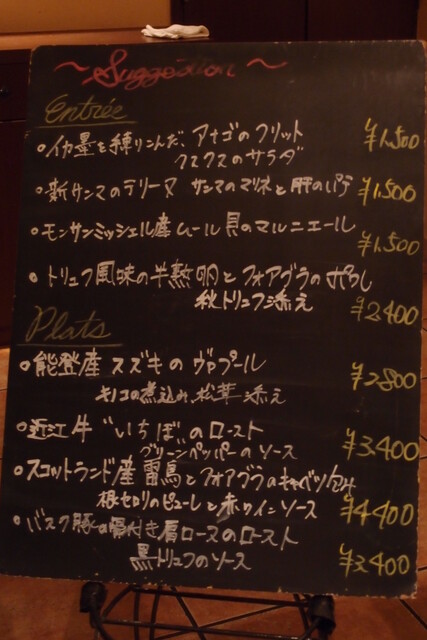 ～Suggestion～
Entrée
・イカ墨を練りこんだ、アナゴのフリット
クスクスのサラダ ¥1,500
・新サンマのテリーヌ サンマのマリネと肝のパテ ¥1,500
・モンサンミッシェル産ムール貝のマルニエール
¥1,500
・トリュフ風味の半熟卵とフォアグラのポワレ
秋トリュフ添え ¥2400
Plats
・能登産スズキのヴァプール
キノコの煮込み、松茸添え ¥2800
・近江牛"いちぼ"のロースト
グリーンペッパーのソース ¥3400
・スコットランド産雷鳥とフォアグラのキャベツ包み
根セロリのピューレと赤ワインソース ¥4400
・バスク豚の骨付き肩ロースのロースト
黒トリュフのソース ¥3400